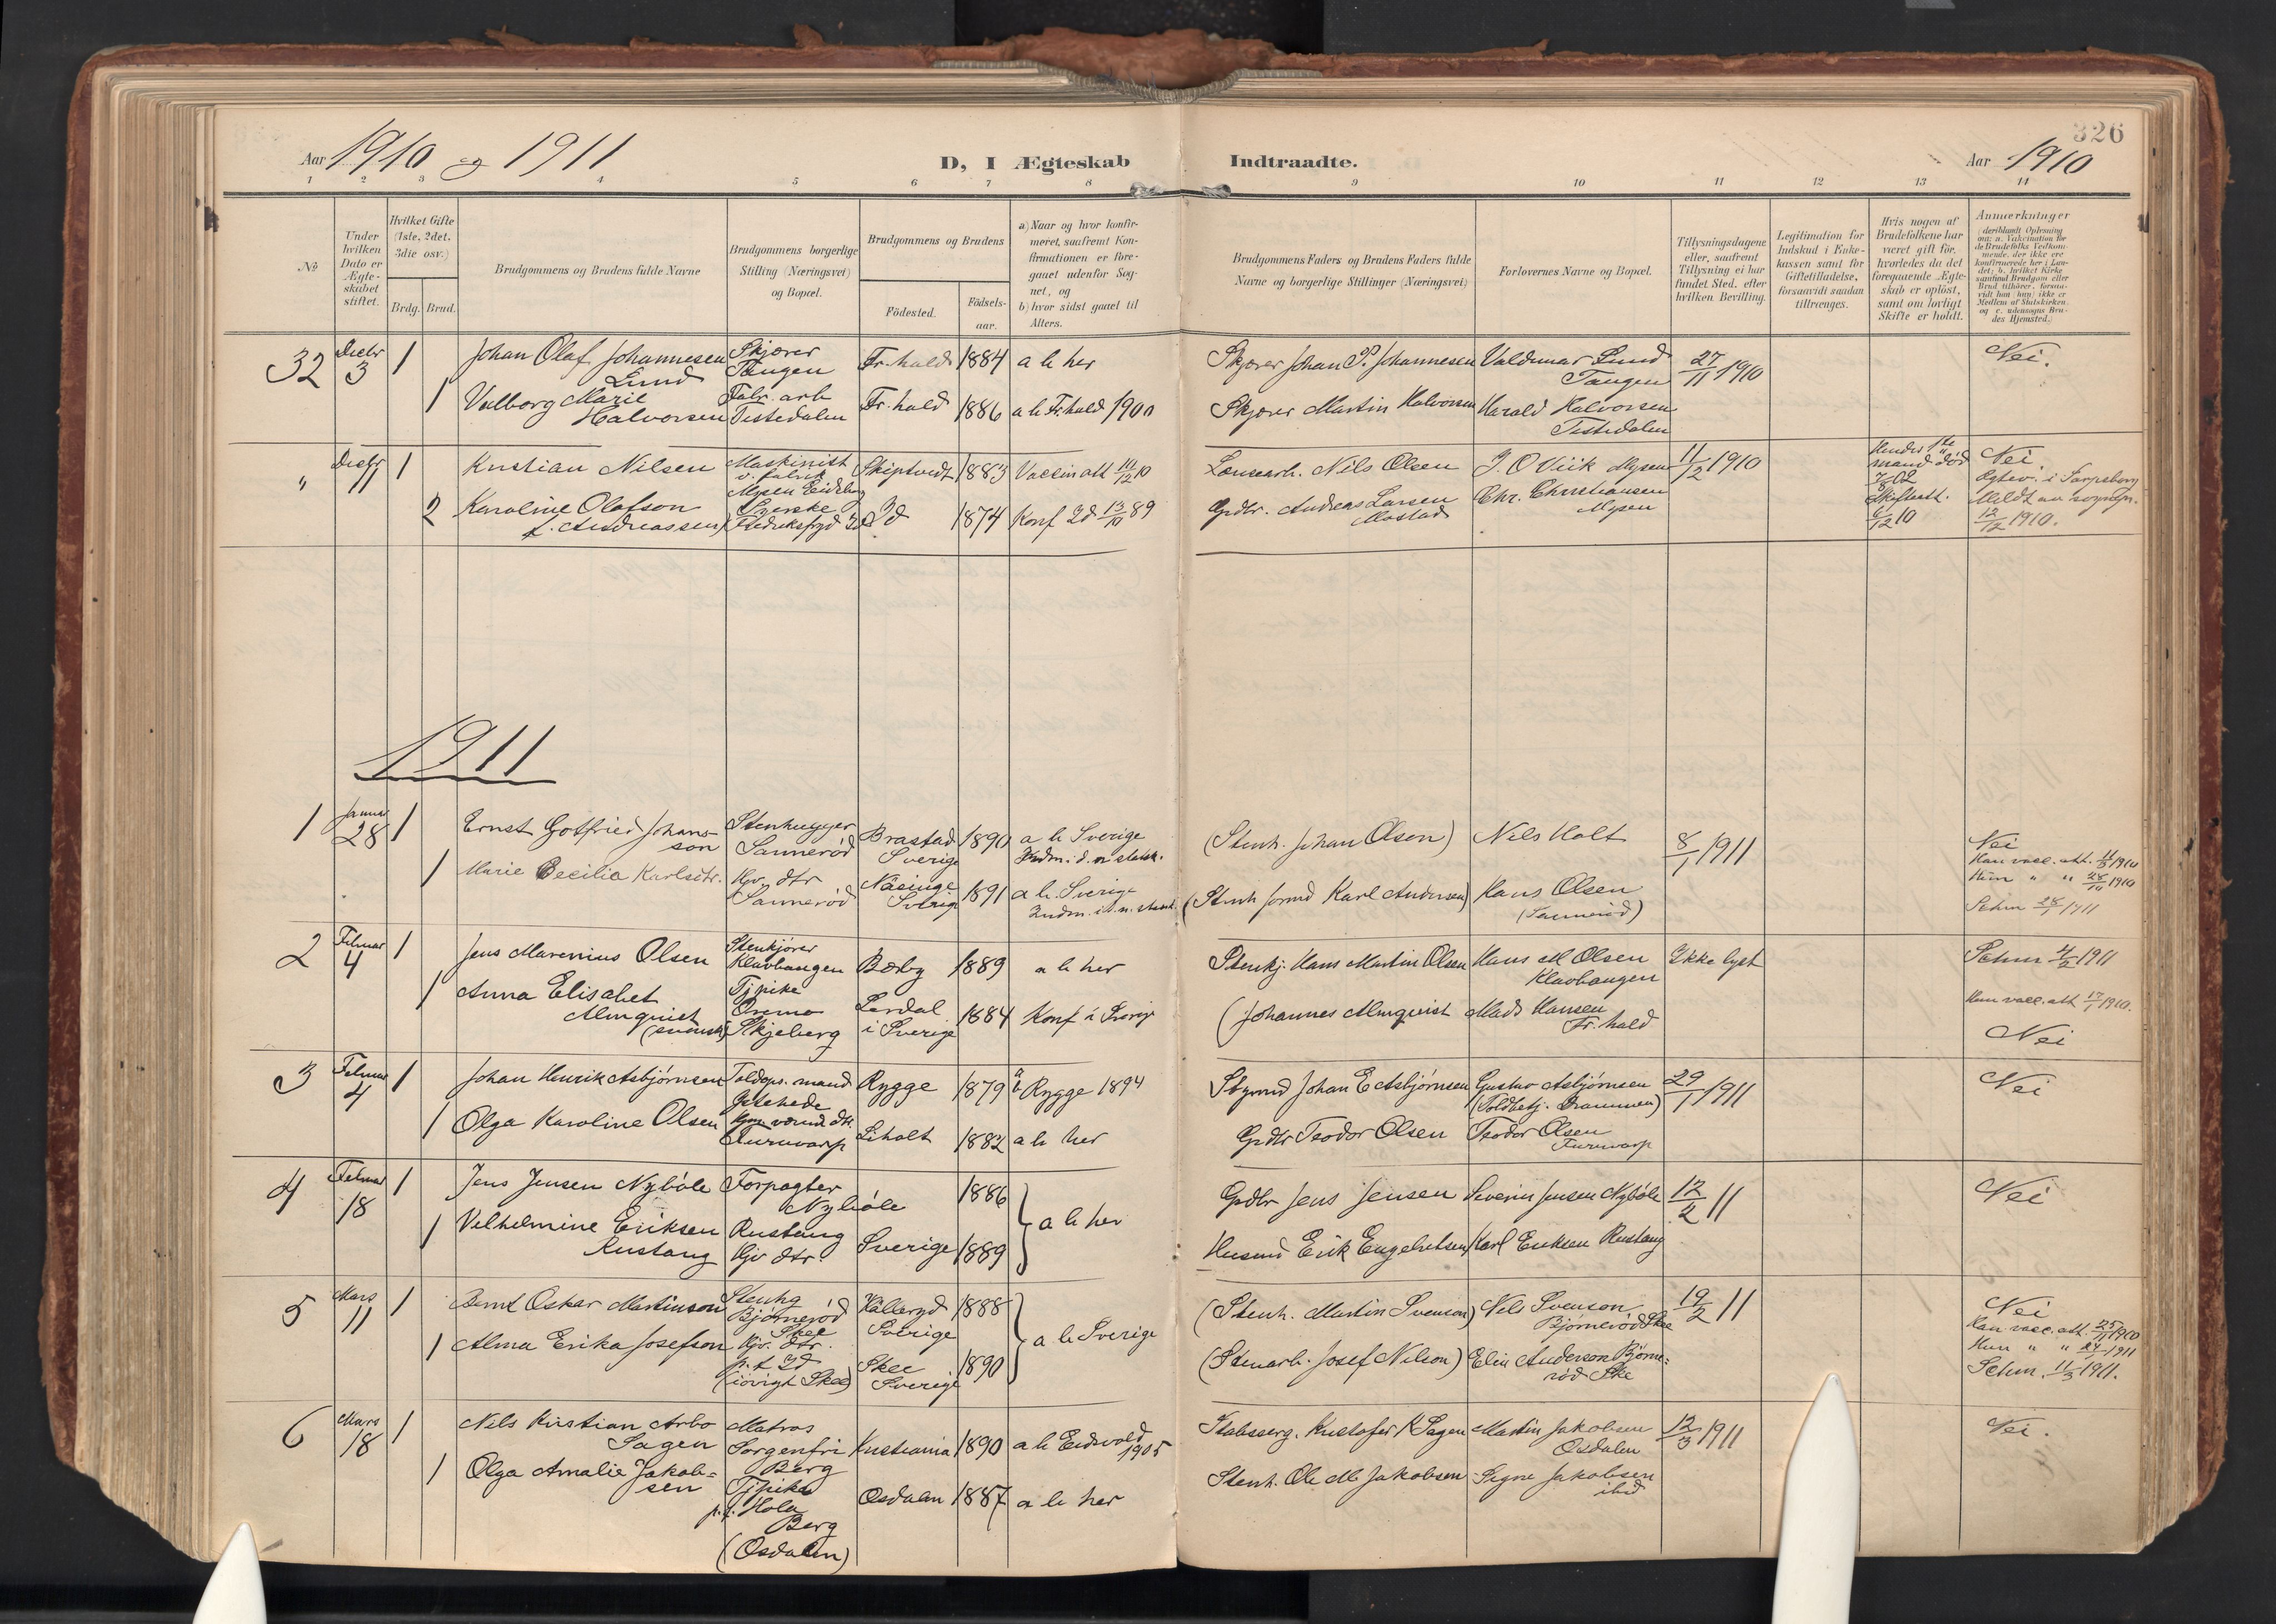 326
Aar 1910 og 1911
D, I Ægteskab
Indtraadte.
Aar 1910
1 2 3 4 5 6 7 8 9 10 11 12 13 14
No
Under
hvilken
Dato er
Ægte-
skabet
stiftet.
Hvilket Gifte
(1ste, 2det,
3die osv.)
Brdg. Brud.
Brudgommens og Brudens fulde Navne
Brudgommens borgerlige
Stilling (Næringsvei)
og Bopæl.
Brudgommens og Brudens
Fødested.
Fødsels-
aar.
a) Naar og hvor konfir-
meret, saafremt Kon-
firmationen er fore-
gaaet udenfor Sog-
net, og
b) hvor sidst gaaet til
Alters.
Brudgommens Faders og Brudens Faders fulde
Navne og borgerlige Stillinger (Næringsvei)
Forlovernes Navne og Bopæl.
Tillysningsdagene
eller, saafremt
Tillysning ei har
fundet Sted, efter
hvilken Bevilling.
Legitimation for
Indskud i Enke-
kassen samt for
Giftetilladelse,
forsaavidt saadan
tiltrænges.
Hvis nogen af
Brudefolkene har
været gift før,
hvorledes da det
foregaaende Ægte-
skab er opløst,
samt om lovligt
Skifte er holdt.
Anmerkninger
32 Decbr 3 1 Johan Olaf Johannesen
Lund
Skjærer
Tangen
Fr.hald 1884 a b her
Skjærer Johan P. Johannesen
Valdemar Lund
Tangen
27/11 1910
Nei.
1 Valborg Marie
Halvorsen
Fabr. arb
Tistedalen
Fr.hald 1886 a b Fr.hald 1900
Skjærer Martin Halvorsen
Harald Halvorsen
Tistedalen
" Decbr 11 1 Kristian Nilsen
Maskinist
Mysen Eidsberg
Skiptvedt 1883 Vaccinatt 10/12 10
Nils Olsen
J. O Viik Mysen
11/12 1910
Hendes 1ste
mand død
Skifteatt.
6/12 10
Nei.
Ægtev. i Sarpsborg
12/12 1910.
2 Karoline Olafson
f. Andreassen)
Id 1874 Konf Id 13/10 89
Grdbr. Andreas Larsen
Chr. Christiansen
Mysen
1911
1 Januar 28 1 Ernst Gotfried Johans-
son
Stenhugger
Sannerød
Brastad
Sverige
1890 a b Sverige
(Stenh. Johan Olsen)
Nils Holt
8/1 1911
Nei
Han vacc. att. 1910
Hun " " 1910
1 Marie Cecilia Karlsdtr.
Gjv. dtr
Sannerød
Näsinge
Sverige
1891 a b. Sverige
(Stenh formd Karl Andersen)
Hans Olsen
(Sannerød)
28/1 1911
2 Februar 4 1 Jens Marenius Olsen
Stenkjører
Klavbangen
Bærby 1889 a b her
Stenkj. Hans Martin Olsen
Hans M Olsen
Klavbangen
Ikke lyst
4/2 1911
1 Anna Elisabet
Almquist
(svensk)
Tjpike
Skjeberg
Lerdal
i Sverige
1884 Konf i Sverige
(Johannes Almquist
Mads Hansen
Fr.hald
Hun vacc. att 1910.
Nei
3 Februar 4 1 Johan Henrik Asbjørnsen
Toldops.mand
Rygge 1879 Rygge 1894
Johan E Asbjørnsen
Gustav Asbjørnsen
(Toldbetj. Drammen)
29/1 1911
Nei
1 Olga Karoline Olsen
Furuvarp
Liholt 1882 a b her
Grdbr Teodor Olsen
Teodor Olsen
Furuvarp
4 Februar 18 1 Jens Jensen Nybøle
Forpagter
Nybøle
1886
a b her
Grdbr Jens Jensen
Severin Jensen Nybøle
12/2 11
Nei
1 Vilhelmine Eriksen
Rustang
Rustang
Gjv dtr.
Sverige 1889
Husmd Erik Engebretsen
Karl Eriksen Rustang
5 Mars 11 1 Bernt Oskar Martinson
Stenhg
Bjørnerød
Skee
Källeryd
Sverige
1888
a b Sverige
(Stenh. Martin Svenson)
Nils Svenson
Bjørnerød Skee
19/2 11
Nei
Han vacc. att. 25/11 1910
Hun " " 1911
11/3 1911.
1 Alma Erika Josefson
Gjv. dtr.
p.t Id
(iøvrigt Skee)
Skee
Sverige
1890
(Stenarb. Josef Nilson)
Elin Anderson Bjørne-
rød Ske
6 Mars 18 1 Nils Kristian Arbo
Sagen
Matros
Sorgenfri
Berg
Kristiania 1890 a b Eidsvold
1905
Stabsserg. Kristofer K Sagen
Martin Jakobsen
Osdalen
12/3 1911
Nei.
1 Olga Amalie Jakob-
sen
Tjpike
p.t. Hola
Berg
(Osdalen)
Osdalen 1887 a b her
Stenh. Ole M Jakobsen
Signe Jakobsen
ibid